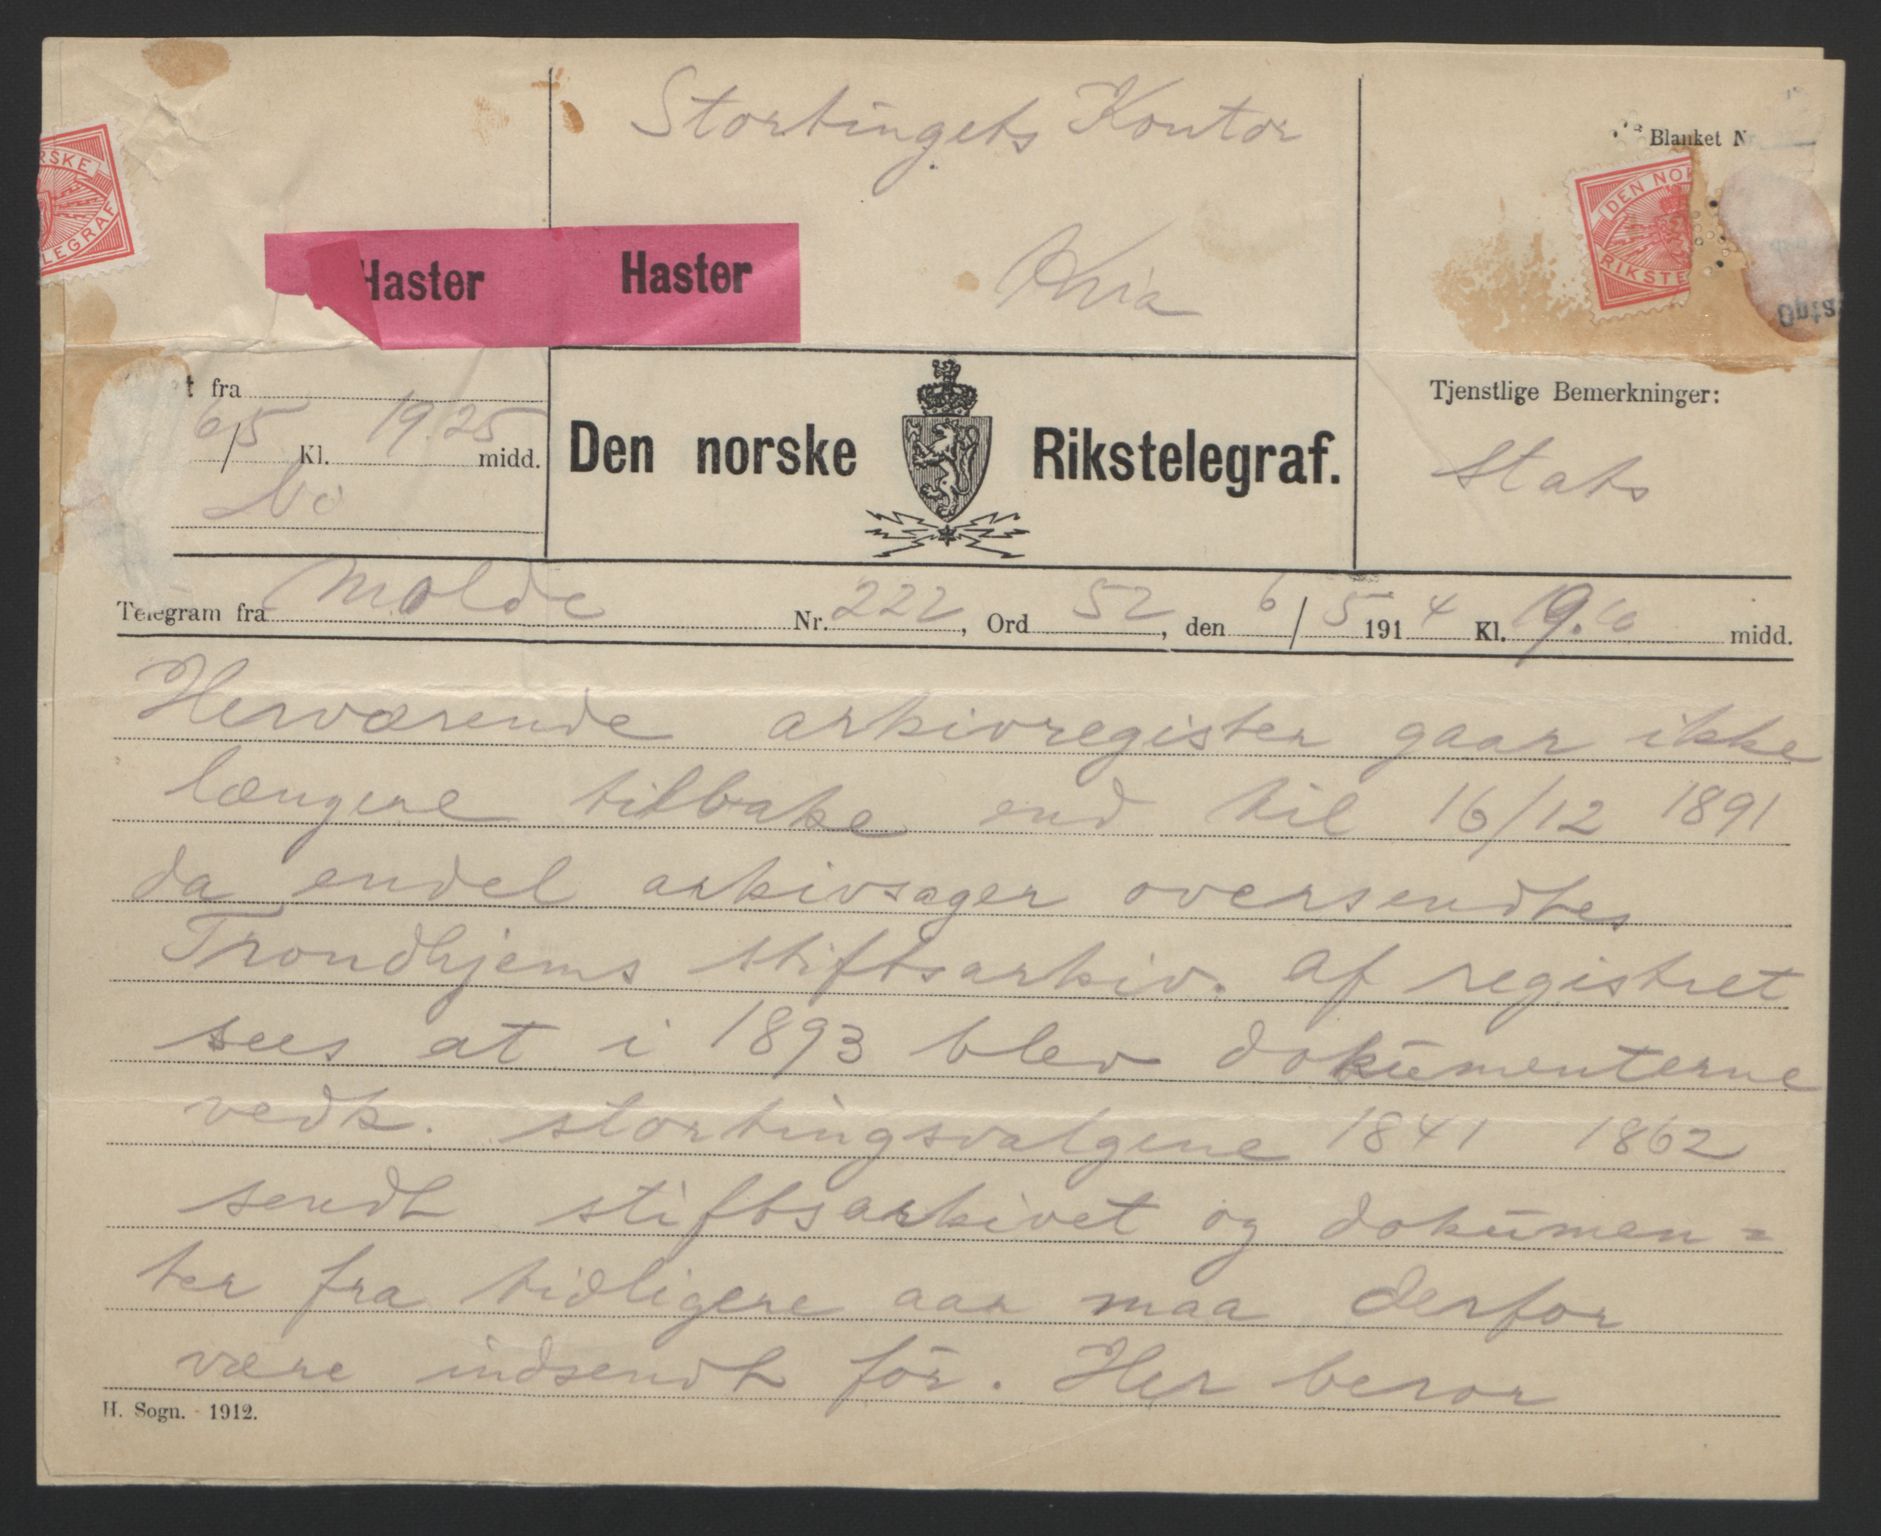 Stortingets Kontor
Kria
Haster
Haster
RSKE
LEGRAF
Blanket N
DEN NOR
RIKSTE
t fra
6/5 Kl. 19.25 midd.
Den norske Rikstelegraf.
Tjenstlige Bemerkninger:
Stats
Telegram fra Molde Nr. 222, Ord 52, den 6/5 1914 Kl. 19.10 midd.
Herværende arkivregister gaar ikke
længere tilbake end til 16/12 1891
da endel arkivsager oversendtes
Trondhjems stiftsarkiv. Af registret
sees at i 1893 blev dokumenterne
vedk. stortingsvalgene 1841 1862
sendt stiftsarkivet og dokumen=
ter fra tidligere aar maa derfor
være indsendt før. Her beror
H. Sogn. - 1912.